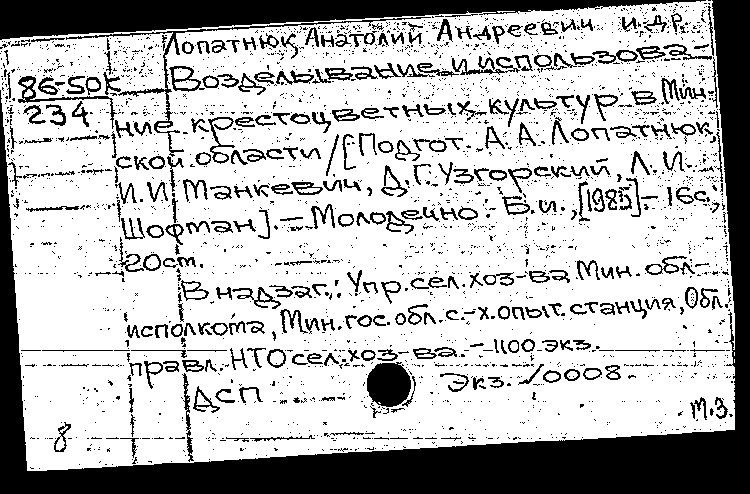 Лопатнюк, Анатолий Андреевич и др.
86-50к
234
Возделывание и использова-
ние крестоцветных культур в Мин-
ской области / [Подгот. А. А. Лопатнюк,
И. И. Манкевич, Д. Г. Узгорский, Л. И.
Шофман]. – Молодечно : Б. и., [1985]. – 16 с.;
20 см.
В надзаг.: Упр. сел. хоз-ва Мин. обл-
исполкома, Мин. гос. обл. с.-х. опыт. станция, Обл.
правл. НТО сел. хоз-ва. – 1100 экз.
ДСП
Экз. ./0008.
8
М.З.